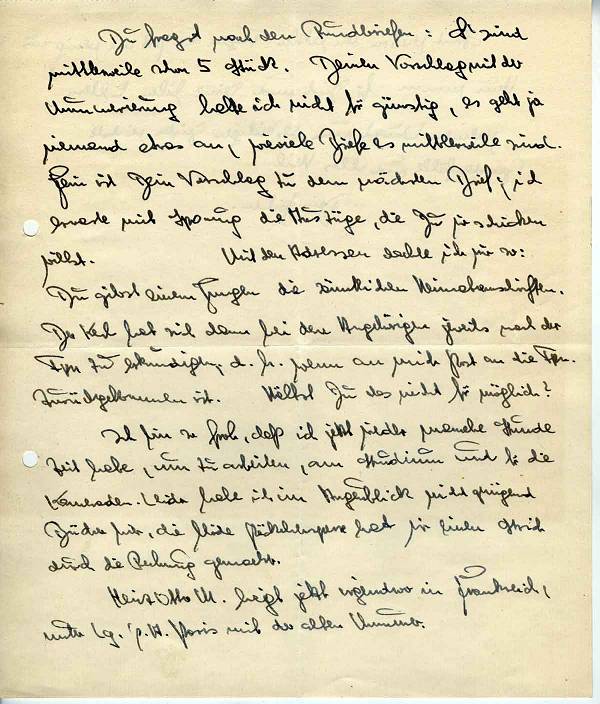 Du fragst nach den Rundbriefen: Es sind
mittlerweile schon 5 Stück. Deinen Vorschlag mit der
Nummerierung halte ich nicht für günstig, es geht ja
niemand etwas an, wieviele Briefe es mittlerweile sind.
Fein ist Dein Vorschlag zu dem nächsten Brief; ich
erwarte mit Spannung die Auszüge, die Du mir schicken
willst. Mit den Adressen dachte ich mir so:
Du gibst einem Jungen die sämtlichen Heimatanschriften.
Der Kerl hat sich dann bei den Angehörigen jeweils nach der
Fpn zu erkundigen, d. h. wenn an mich Post an die Fpn.
zurückgekommen ist. Hältst Du das nicht für möglich?
Ich bin so froh, daß ich jetzt wieder manche Stunde
Zeit habe, um zu arbeiten, am Studium und für die
Kameraden. Leider habe ich im Augenblick nicht genügend
Bücher hier, die blöde Päckchensperre hat mir einen Strich
durch die Rechnung gemacht.
Heinz Otto M. liegt jetzt irgendwo in Frankreich,
unter Lg. P.A. Paris mit der alten Nummer.